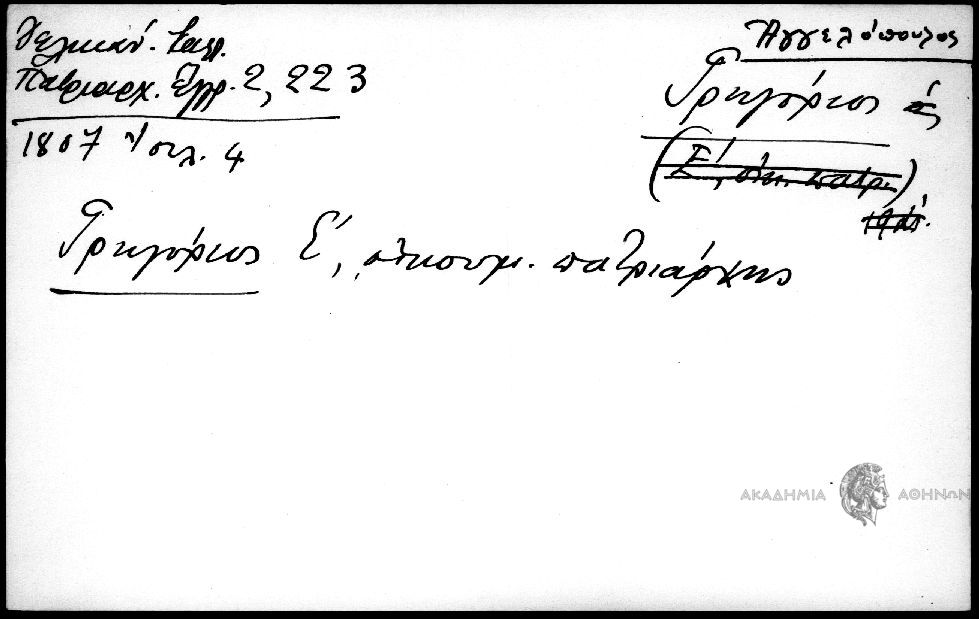 Δελικάν. Καλλ.
Πατριαρχ. Ἔγγρ. 2, 223
1807 Ἰουλ. 4
Ἀγγελόπουλος
Γρηγόριος
(Ε΄, οἰκ. πατρ.)
Γρηγόριος Ε΄, οἰκουμ. πατριάρχης
ΑΚΑΔΗΜΙΑ ΑΘΗΝΩΝ